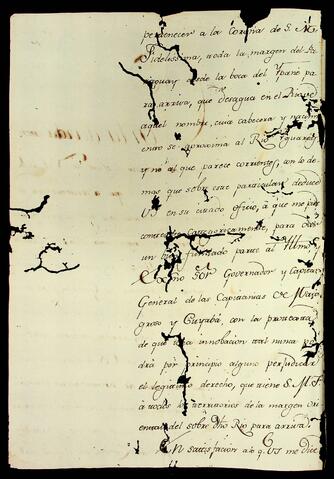 pertenecer a la Corona de S. M.
Fidelissima, toda la margen del
desde la boca del Ypane pa
ra arriva, que desagua en el
aquel nombre, cuia cabecera y
se aproxima al Rio
y no al que parece corrientes, con lo de
mas que sobre este particular deduce
VS en su citado oficio, a que
Categoricamente, para
un parte al Illmo
Exmo Sor Governador y Capitan
General de las Capitanias de Mato
groso y Cuyabá, con la protexta
de que esta innobacion tal nunca po
drá por principio alguno perjudicar
el legitimo derecho, que tiene S. M. F.
a todos los territorios de la margen ori
ental del sobre dho Rio para arriva.
En satisfacion a lo q. VS me dice